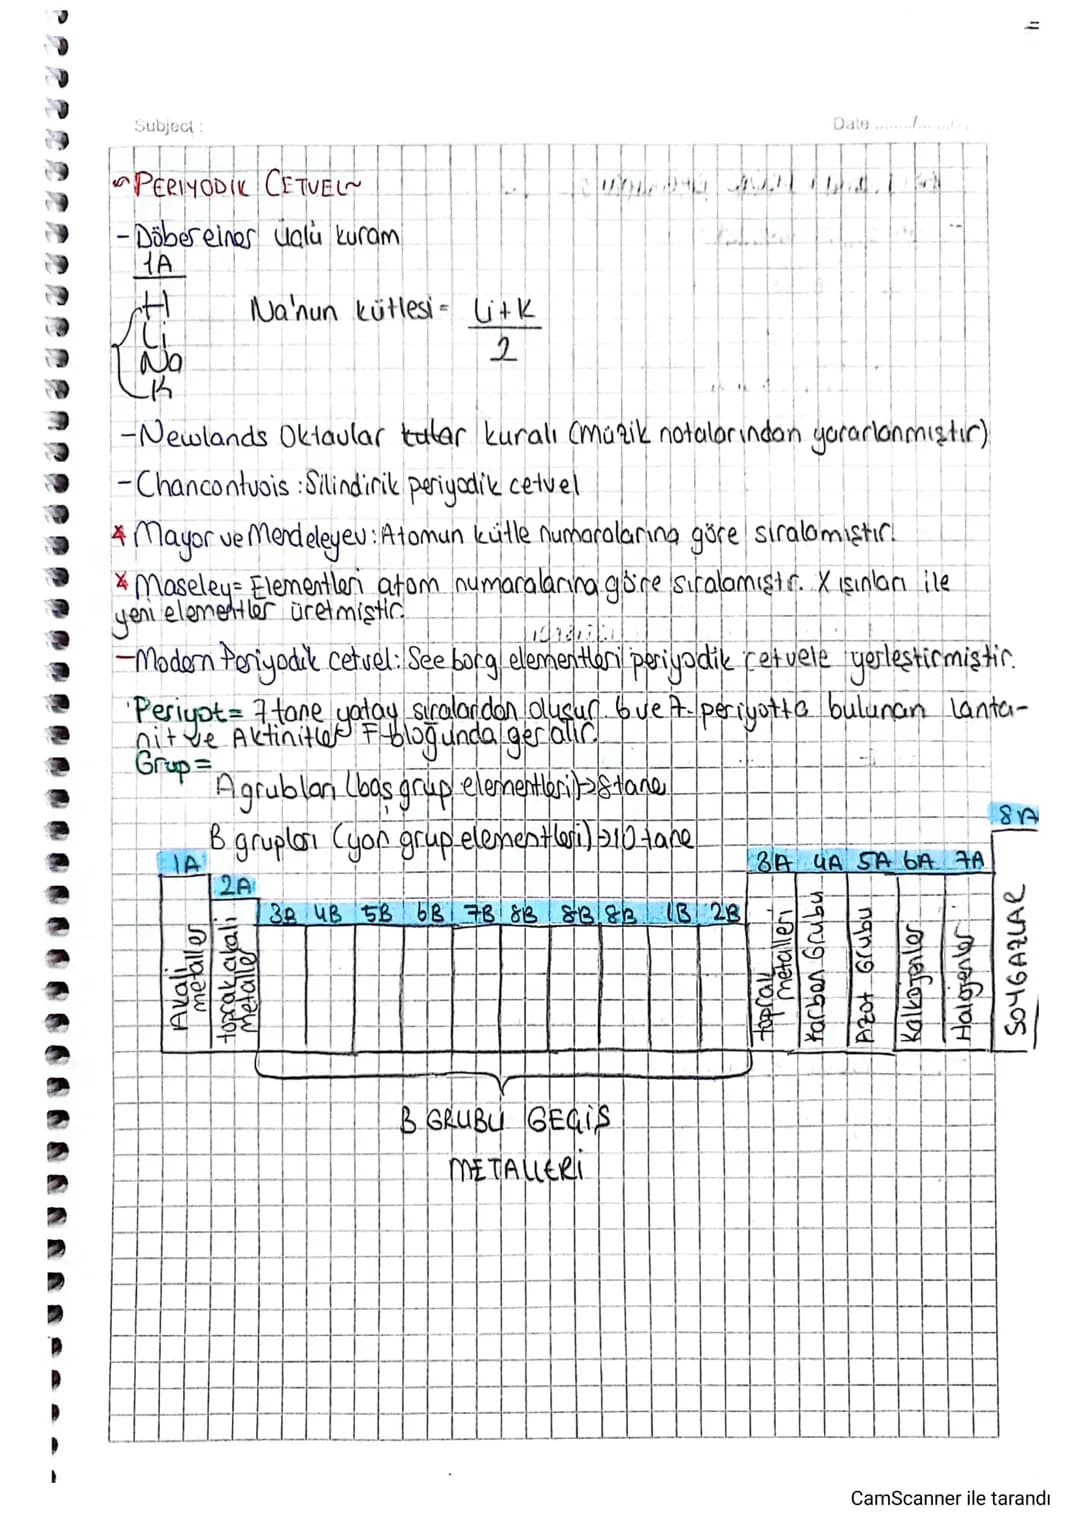 Subject :
Date ......../........
~PERİYODİK CETVEL~
-Döbereiner üçlü kuram
1A
H
Li
Na
K
Na'nun kütlesi = Li+K
2
-Newlands Oktavlar kuralı (müzik notalarından yararlanmıştır)
-Chancontuois : Silindirik periyodik cetvel
* Mayor ve Mendeleyev : Atomun kütle numaralarına göre sıralamıştır.
* Moseley= Elementleri atom numaralarına göre sıralamıştır. X ışınları ile
yeni elementler üretmiştir.
-Modern Periyodik cetvel: See borg elementleri periyodik cetvele yerleştirmiştir.
Periyot= 7 tane yatay sıralardan oluşur. 6 ve 7. periyotta bulunan Lanta-
nit ve Aktinitler F bloğunda yer alır.
Grup=
A grubları (baş grup elementleri)→8 tane
B grupları (yan grup elementleri)→10 tane
8A
1A 3A 4A 5A 6A 7A
2A
3B 4B 5B 6B 7B 8B 8B 8B 1B 2B
Alkali metaller
toprak alkali metaller
toprak metalleri
Karbon Grubu
Azot Grubu
Kalkojenler
Halojenler
SOYGAZLAR
B GRUBU GEÇİŞ
METALLERİ
CamScanner ile tarandı